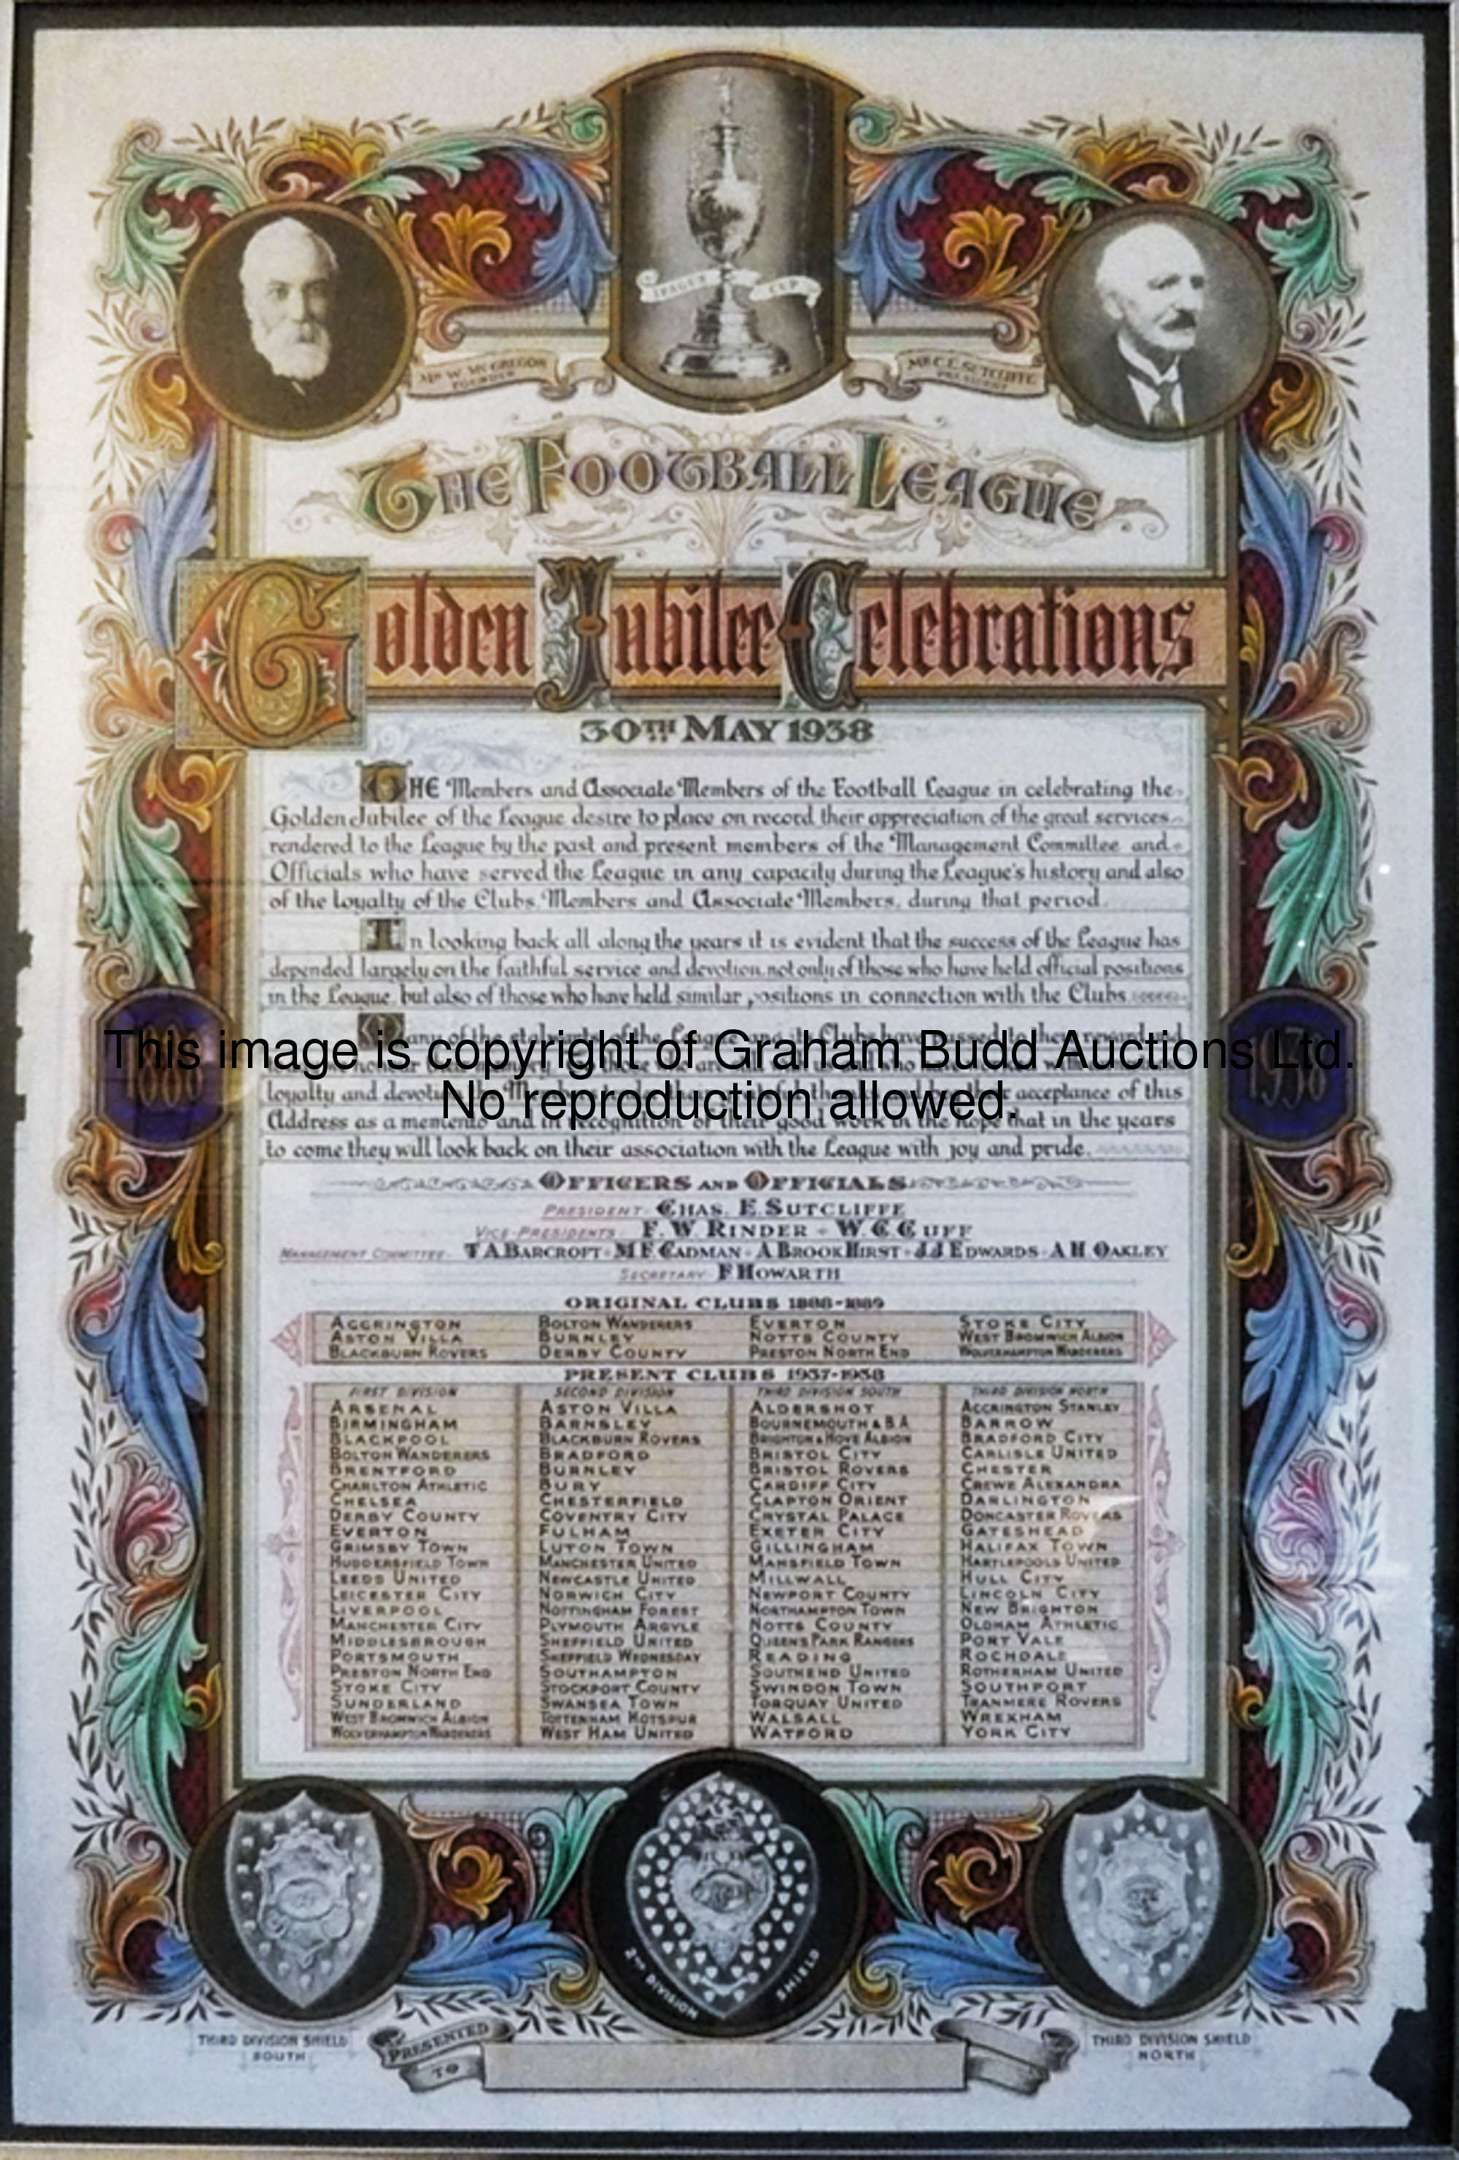 LEAGUE CUP
MR W. McGREGOR
FOUNDER
MR C.E. SUTCLIFFE
PRESIDENT
THE FOOTBALL LEAGUE
Golden Jubilee Celebrations
30TH MAY 1938
THE Members and Associate Members of the Football League in celebrating the
Golden Jubilee of the League desire to place on record their appreciation of the great services
rendered to the League by the past and present members of the Management Committee and
Officials who have served the League in any capacity during the League's history and also
of the loyalty of the Clubs, Members and Associate Members, during that period.
In looking back all along the years it is evident that the success of the League has
depended largely on the faithful service and devotion, not only of those who have held official positions
in the League, but also of those who have held similar positions in connection with the Clubs.
Many of the stalwarts of the League and its Clubs have passed to their reward and
This image is copyright of Graham Budd Auctions Ltd.
1888
1938
loyalty and devotion the Members tender their grateful thanks and beg their acceptance of this
No reproduction allowed.
Address as a memento and in recognition of their good work in the hope that in the years
to come they will look back on their association with the League with joy and pride.
OFFICERS AND OFFICIALS
PRESIDENT - CHAS. E. SUTCLIFFE
VICE-PRESIDENTS F. W. RINDER - W. C. CUFF
MANAGEMENT COMMITTEE - T A BARCROFT - M F CADMAN - A BROOK HIRST - J J EDWARDS - A H OAKLEY
SECRETARY F HOWARTH
ORIGINAL CLUBS 1888-1889
ACCRINGTON BOLTON WANDERERS EVERTON STOKE CITY
ASTON VILLA BURNLEY NOTTS COUNTY WEST BROMWICH ALBION
BLACKBURN ROVERS DERBY COUNTY PRESTON NORTH END WOLVERHAMPTON WANDERERS
PRESENT CLUBS 1937-1938
FIRST DIVISION SECOND DIVISION THIRD DIVISION SOUTH THIRD DIVISION NORTH
ARSENAL ASTON VILLA ALDERSHOT ACCRINGTON STANLEY
BIRMINGHAM BARNSLEY BOURNEMOUTH & B.A. BARROW
BLACKPOOL BLACKBURN ROVERS BRIGHTON & HOVE ALBION BRADFORD CITY
BOLTON WANDERERS BRADFORD BRISTOL CITY CARLISLE UNITED
BRENTFORD BURNLEY BRISTOL ROVERS CHESTER
CHARLTON ATHLETIC BURY CARDIFF CITY CREWE ALEXANDRA
CHELSEA CHESTERFIELD CLAPTON ORIENT DARLINGTON
DERBY COUNTY COVENTRY CITY CRYSTAL PALACE DONCASTER ROVERS
EVERTON FULHAM EXETER CITY GATESHEAD
GRIMSBY TOWN LUTON TOWN GILLINGHAM HALIFAX TOWN
HUDDERSFIELD TOWN MANCHESTER UNITED MANSFIELD TOWN HARTLEPOOLS UNITED
LEEDS UNITED NEWCASTLE UNITED MILLWALL HULL CITY
LEICESTER CITY NORWICH CITY NEWPORT COUNTY LINCOLN CITY
LIVERPOOL NOTTINGHAM FOREST NORTHAMPTON TOWN NEW BRIGHTON
MANCHESTER CITY PLYMOUTH ARGYLE NOTTS COUNTY OLDHAM ATHLETIC
MIDDLESBROUGH SHEFFIELD UNITED QUEENS PARK RANGERS PORT VALE
PORTSMOUTH SHEFFIELD WEDNESDAY READING ROCHDALE
PRESTON NORTH END SOUTHAMPTON SOUTHEND UNITED ROTHERHAM UNITED
STOKE CITY STOCKPORT COUNTY SWINDON TOWN SOUTHPORT
SUNDERLAND SWANSEA TOWN TORQUAY UNITED TRANMERE ROVERS
WEST BROMWICH ALBION TOTTENHAM HOTSPUR WALSALL WREXHAM
WOLVERHAMPTON WANDERERS WEST HAM UNITED WATFORD YORK CITY
2ND DIVISION SHIELD
THIRD DIVISION SHIELD
SOUTH
PRESENTED
TO
THIRD DIVISION SHIELD
NORTH